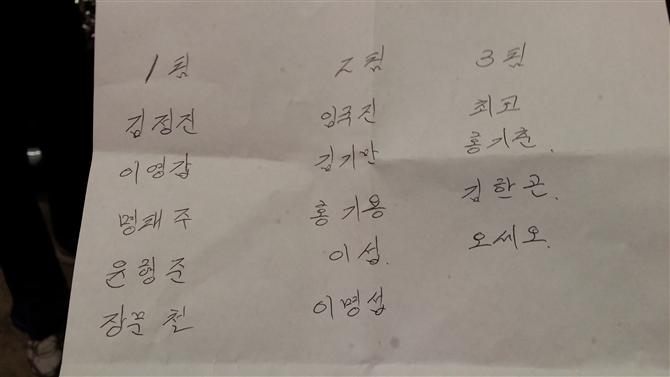 1팀
김정진
이영갑
명태주
윤형준
장문철
2팀
임국진
김기만
홍기용
이섭.
이명섭
3팀
최고
홍기춘.
김한곤.
오세오.